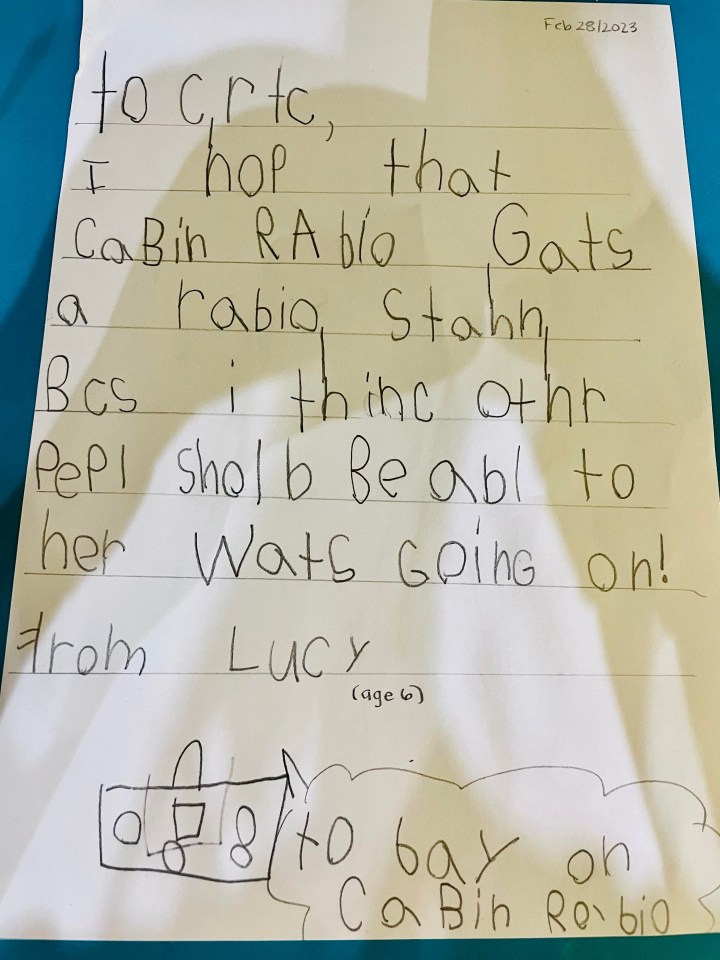 Feb 28/2023
to crtc,
I hop that
CaBin RAbio Gats
a rabio Stahn
Bcs i thinc othr
PePl sholb Be abl to
her Wats GOing on!
from Lucy
(age 6)
to bay on
CaBin Rabio